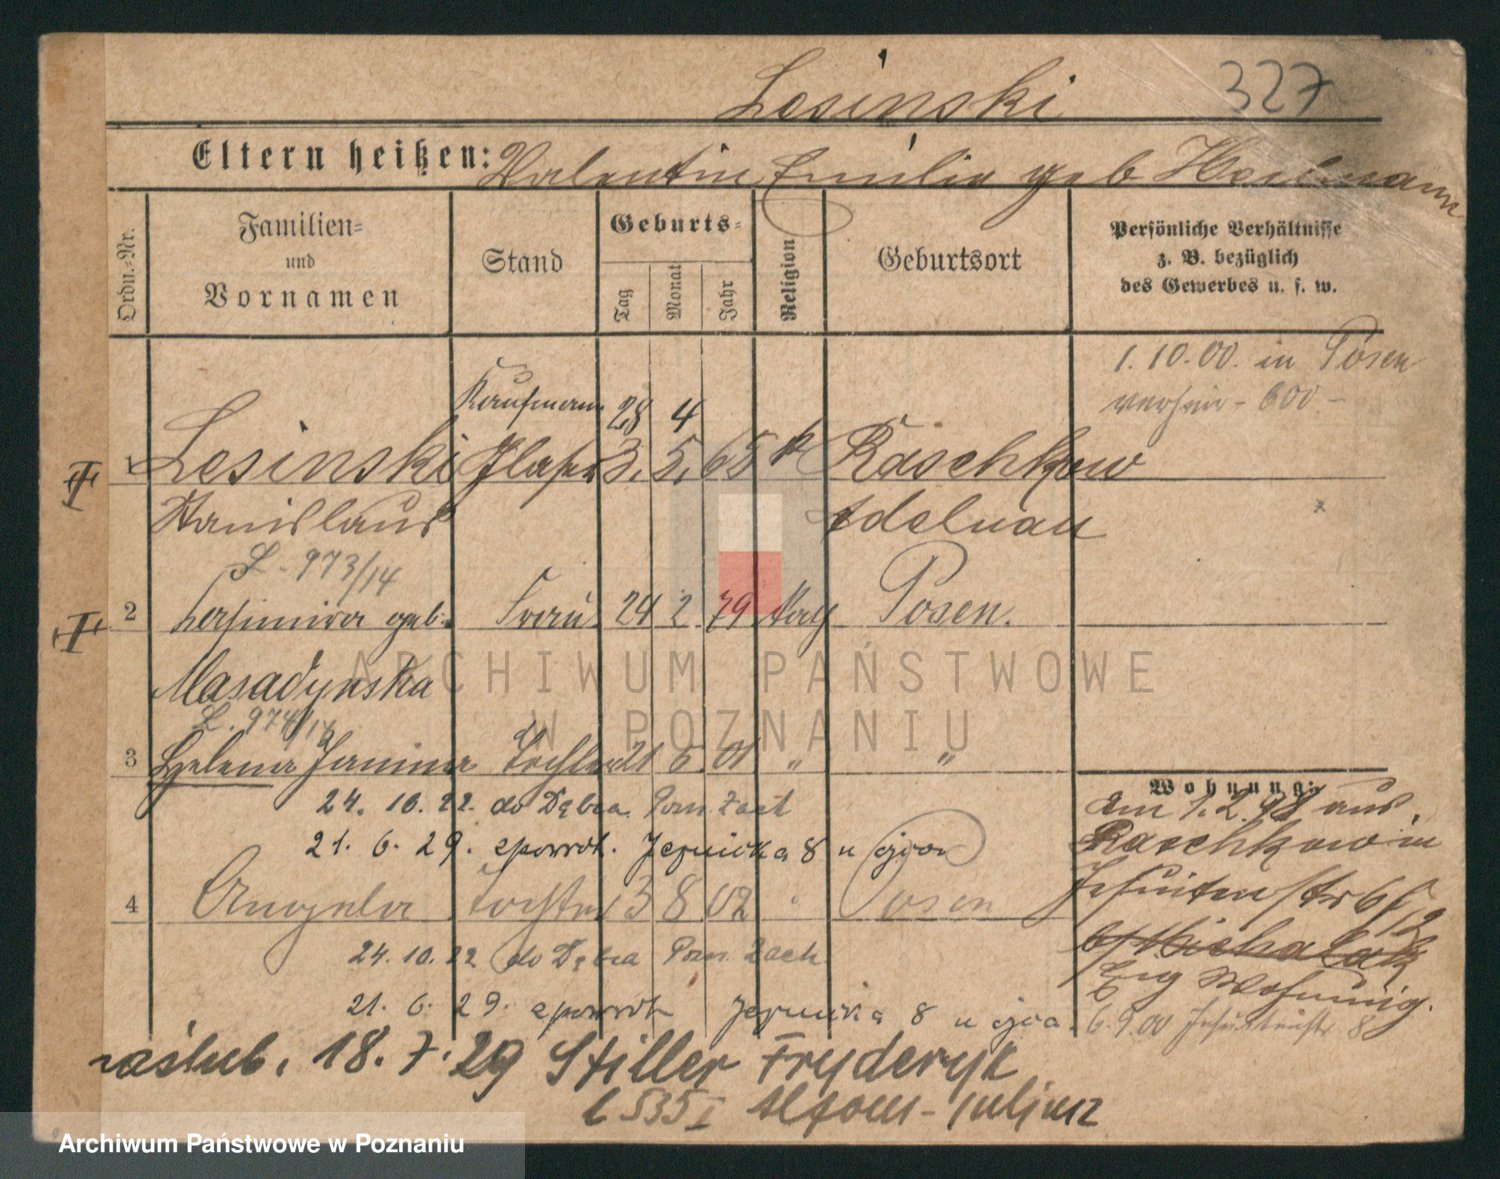 Lesinski 327
Eltern heißen: Valentin Emilie geb Heilmann
Ordn.-Nr.
Familien-
und
Vornamen
Stand
Geburts-
Tag Monat Jahr
Religion
Geburtsort
Persönliche Verhältnisse
z. B. bezüglich
des Gewerbes u. s. w.
1. 10.00. in Posen
600
Kaufmann 28 4
1 Lesinski 3. 5. 65 k Raschkow
Stanislaus Adelnau
L. 973/14
2 geb. Frau 24 2 79 kath Posen.
L. 974/14
3 Helena Janina Tochter 21 6. 01 " "
24. 10. 22. do Dębca Pozn. Zach
21. 6. 29. zpowrót. Jezuicka 8 u ojca
4 Angela Tochter 13 8 02 " Posen
24. 10. 22 do Dębca Pozn. Zach
21. 6. 29. zpowrót Jezuicka 8 u ojca.
Wohnung:
am 1.2.98 aus
Raschkow in
Jesuitenstr
Wohnung.
6. 9.00 Jesuitenstr 8
zaślub. 18. 7. 29 Stiller Fryderyk
Alfons-Juljusz
ARCHIWUM PAŃSTWOWE
W POZNANIU
Archiwum Państwowe w Poznaniu